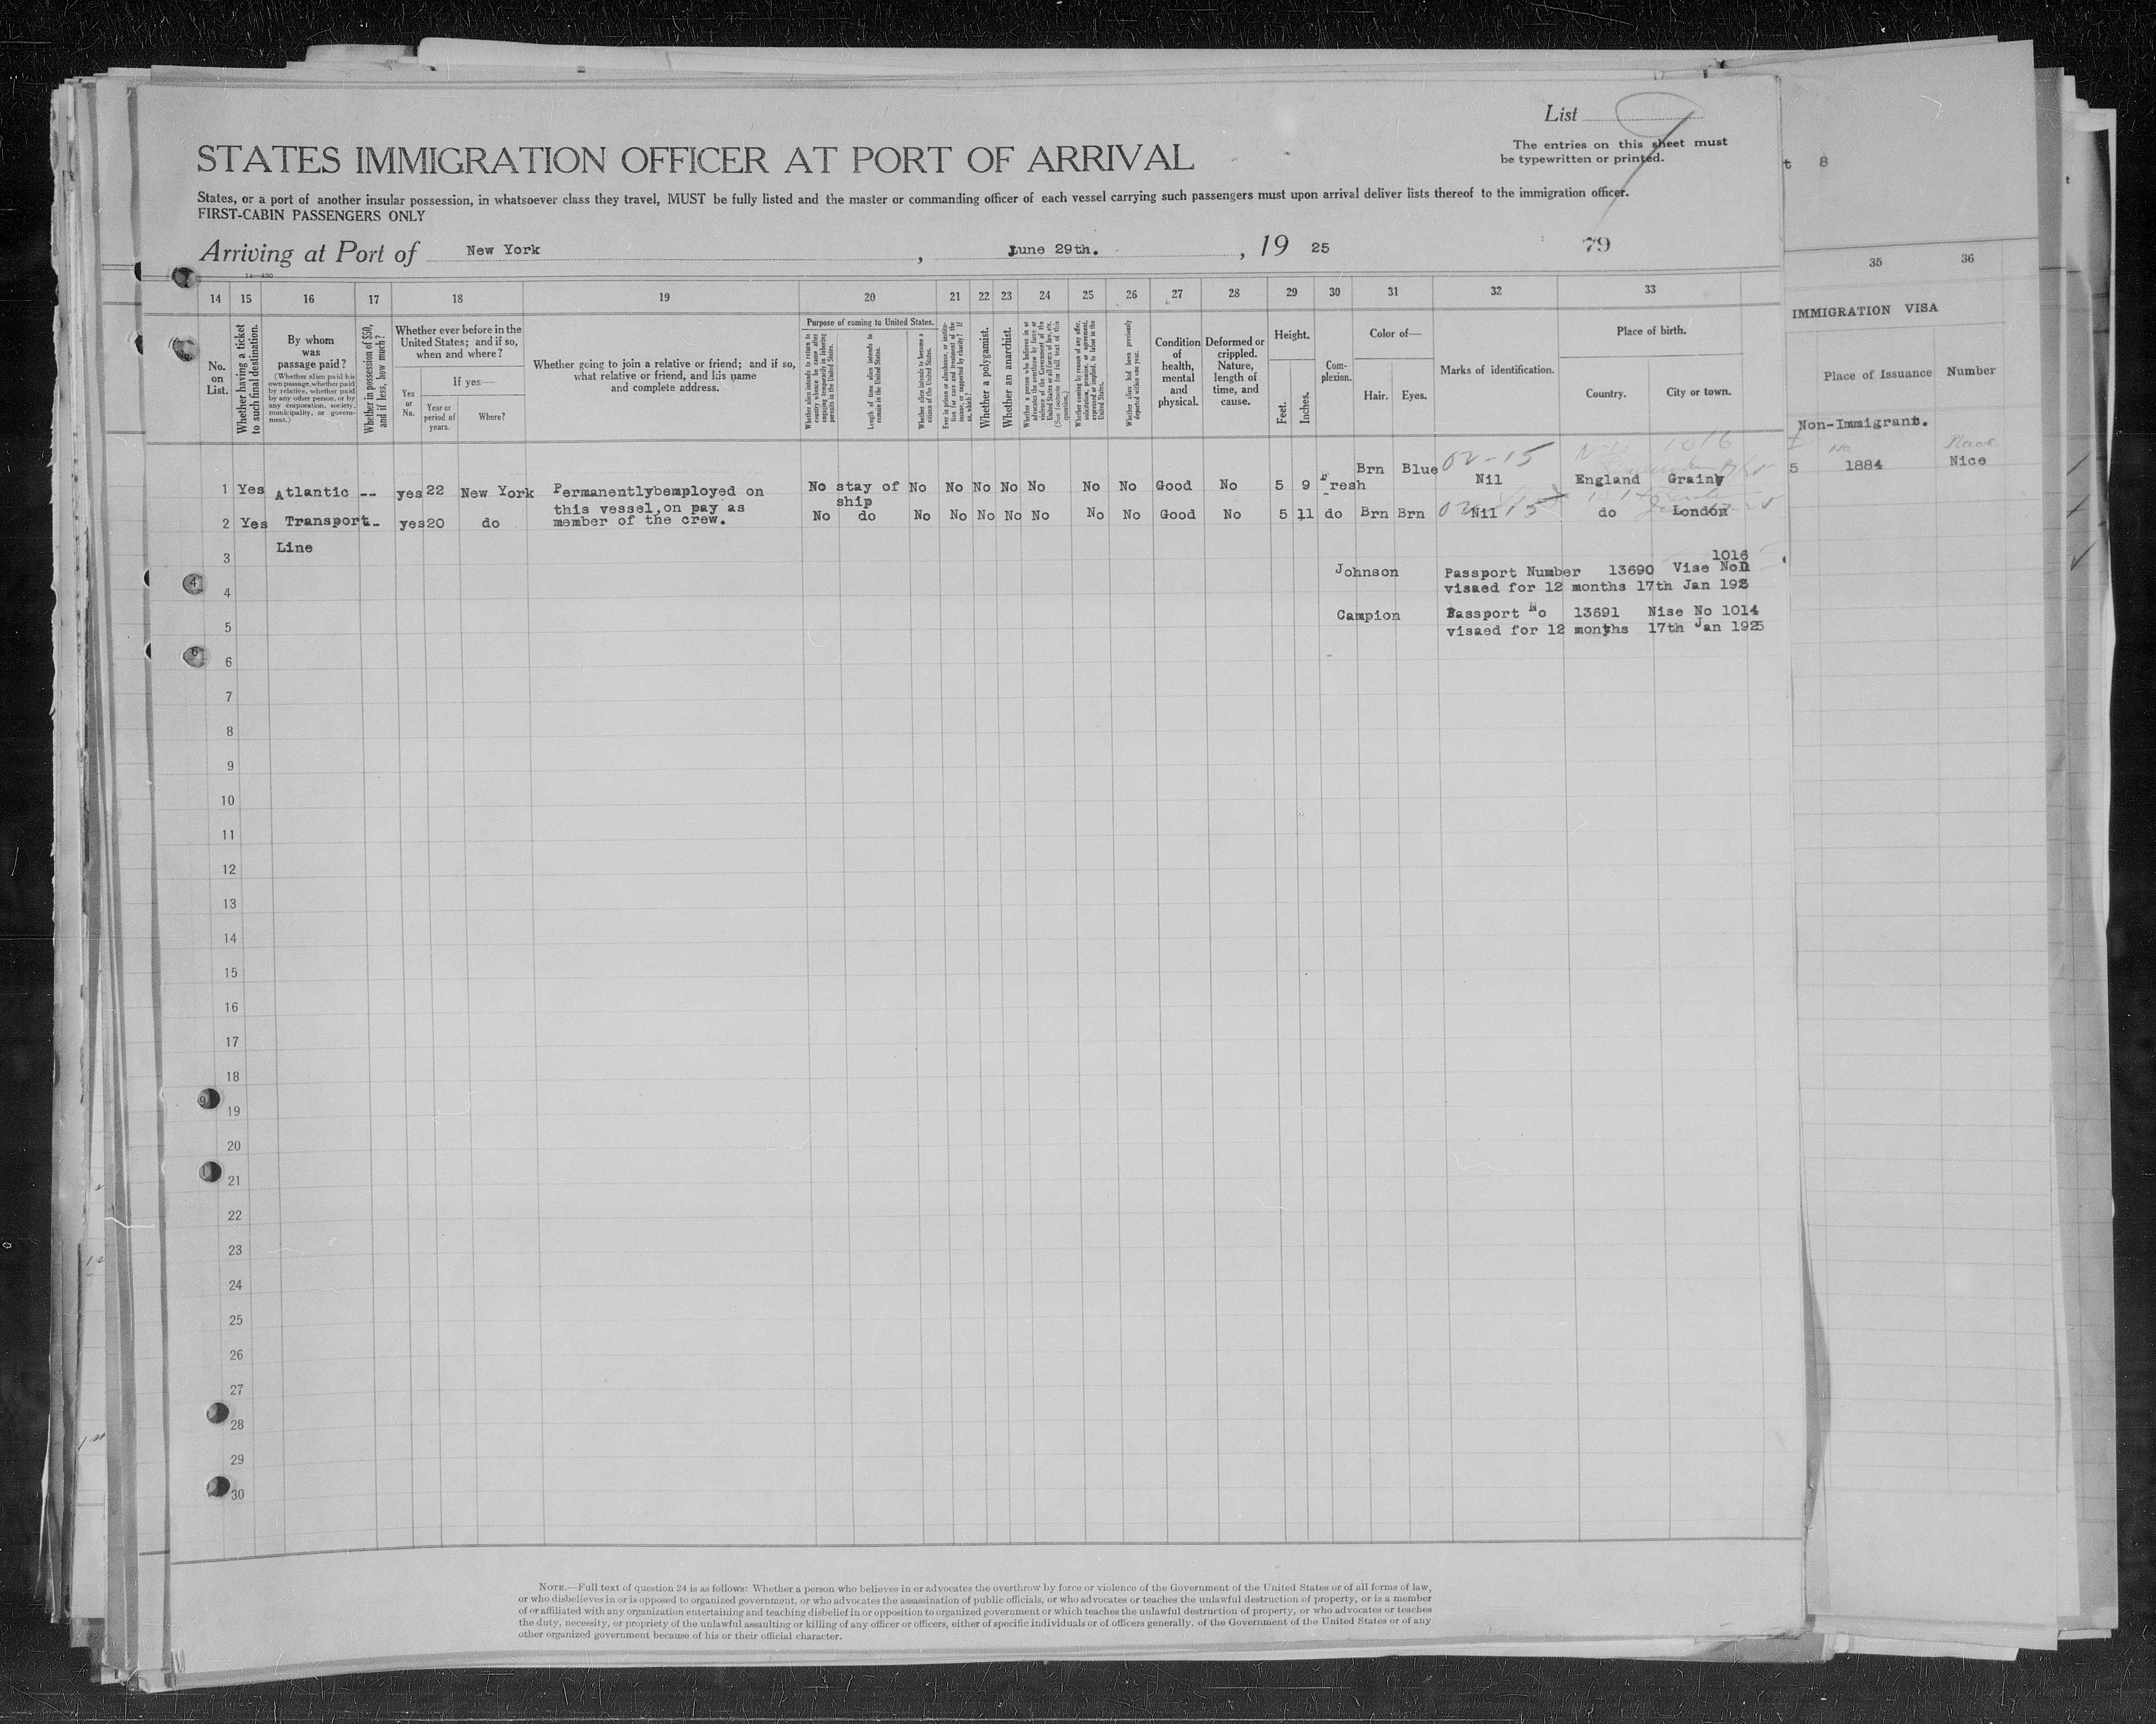 List
The entries on this sheet must
be typewritten or printed.
STATES IMMIGRATION OFFICER AT PORT OF ARRIVAL
States, or a port of another insular possession, in whatsoever class they travel, MUST be fully listed and the master or commanding officer of each vessel carrying such passengers must upon arrival deliver lists thereof to the immigration officer.
FIRST-CABIN PASSENGERS ONLY
Arriving at Port of New York , June 29th. , 19 25 79
14 15 16 17 18 19 20 21 22 23 24 25 26 27 28 29 30 31 32 33
No. on List.
Whether having a ticket to such final destination.
By whom was passage paid?
(Whether alien paid his own passage, whether paid by relative, whether paid by any other person, or by any corporation, society, municipality, or government.)
Whether in possession of $50, and if less, how much?
Whether ever before in the United States; and if so, when and where?
If yes—
Yes or No.
Year or period of years.
Where?
Whether going to join a relative or friend; and if so, what relative or friend, and his name and complete address.
Purpose of coming to United States.
Whether alien intends to return to country whence he came after engaging temporarily in laboring pursuits in the United States.
Length of time alien intends to remain in the United States.
Whether alien intends to become a citizen of the United States.
Whether a polygamist.
Whether an anarchist.
Condition of health, mental and physical.
Deformed or crippled. Nature, length of time, and cause.
Height.
Feet.
Inches.
Complexion.
Color of—
Hair.
Eyes.
Marks of identification.
Place of birth.
Country.
City or town.
1 Yes Atlantic -- yes 22 New York Permanentlybemployed on No stay of ship No No No No No No No Good No 5 9 Fresh Brn Blue Nil England Grainy
this vessel,on pay as
2 Yes Transport-- yes 20 do member of the crew. No do No No No No No No No Good No 5 11 do Brn Brn Nil do London
Line
3
1016
Johnson Passport Number 13690 Vise No
4 visaed for 12 months 17th Jan 192
Campion Passport No 13691 Nise No 1014
5 visaed for 12 months 17th Jan 1925
6
7
8
9
10
11
12
13
14
15
16
17
18
19
20
21
22
23
24
25
26
27
28
29
30
NOTE.—Full text of question 24 is as follows: Whether a person who believes in or advocates the overthrow by force or violence of the Government of the United States or of all forms of law,
or who disbelieves in or is opposed to organized government, or who advocates the assassination of public officials, or who advocates or teaches the unlawful destruction of property, or is a member
of or affiliated with any organization entertaining and teaching disbelief in or opposition to organized government or which teaches the unlawful destruction of property, or who advocates or teaches
the duty, necessity, or propriety of the unlawful assaulting or killing of any officer or officers, either of specific individuals or of officers generally. of the Government of the United States or of any
other organized government because of his or their official character.
t 8
35 36
IMMIGRATION VISA
Place of Issuance Number
Non-Immigrant.
5 1884 Nice